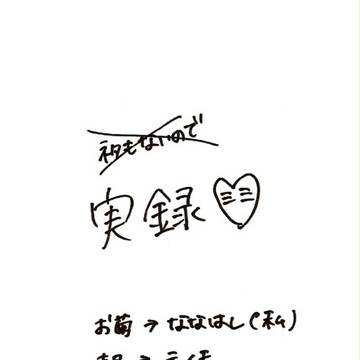 ネタもないので
実録
お菊→ななはし(私)